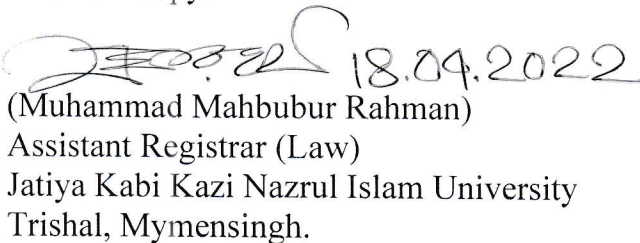 18.04.2022
(Muhammad Mahbubur Rahman)
Assistant Registrar (Law)
Jatiya Kabi Kazi Nazrul Islam University
Trishal, Mymensingh.